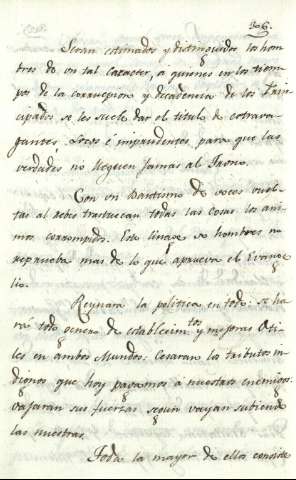 306.
Seran estimados y distinguidos los hom
bres de un tal caracter, á quienes en los tiem
pos de la corrupcion y decadencia de los Prin
cipados se les suele dar el titulo de extrava
gantes, locos é imprudentes para que las
verdades no lleguen jamas al Trono.
Con un Bautismo de voces vuel
tas al rebes trastruecan todas las cosas los ani
mos corrompidos. Este linage de hombres no
reprueba mas de lo que aprueva el Evange
lio.
Reynará la politica en todo: se ha
rá todo genero de establecim.tos y mejoras uti
les en ambos Mundos: Cesaran los tributos in
dignos que hoy pagamos á nuestros enemigos:
vajaran sus fuerzas segun vayan subiendo
las nuestras.
Toda la mayor de ellas consiste